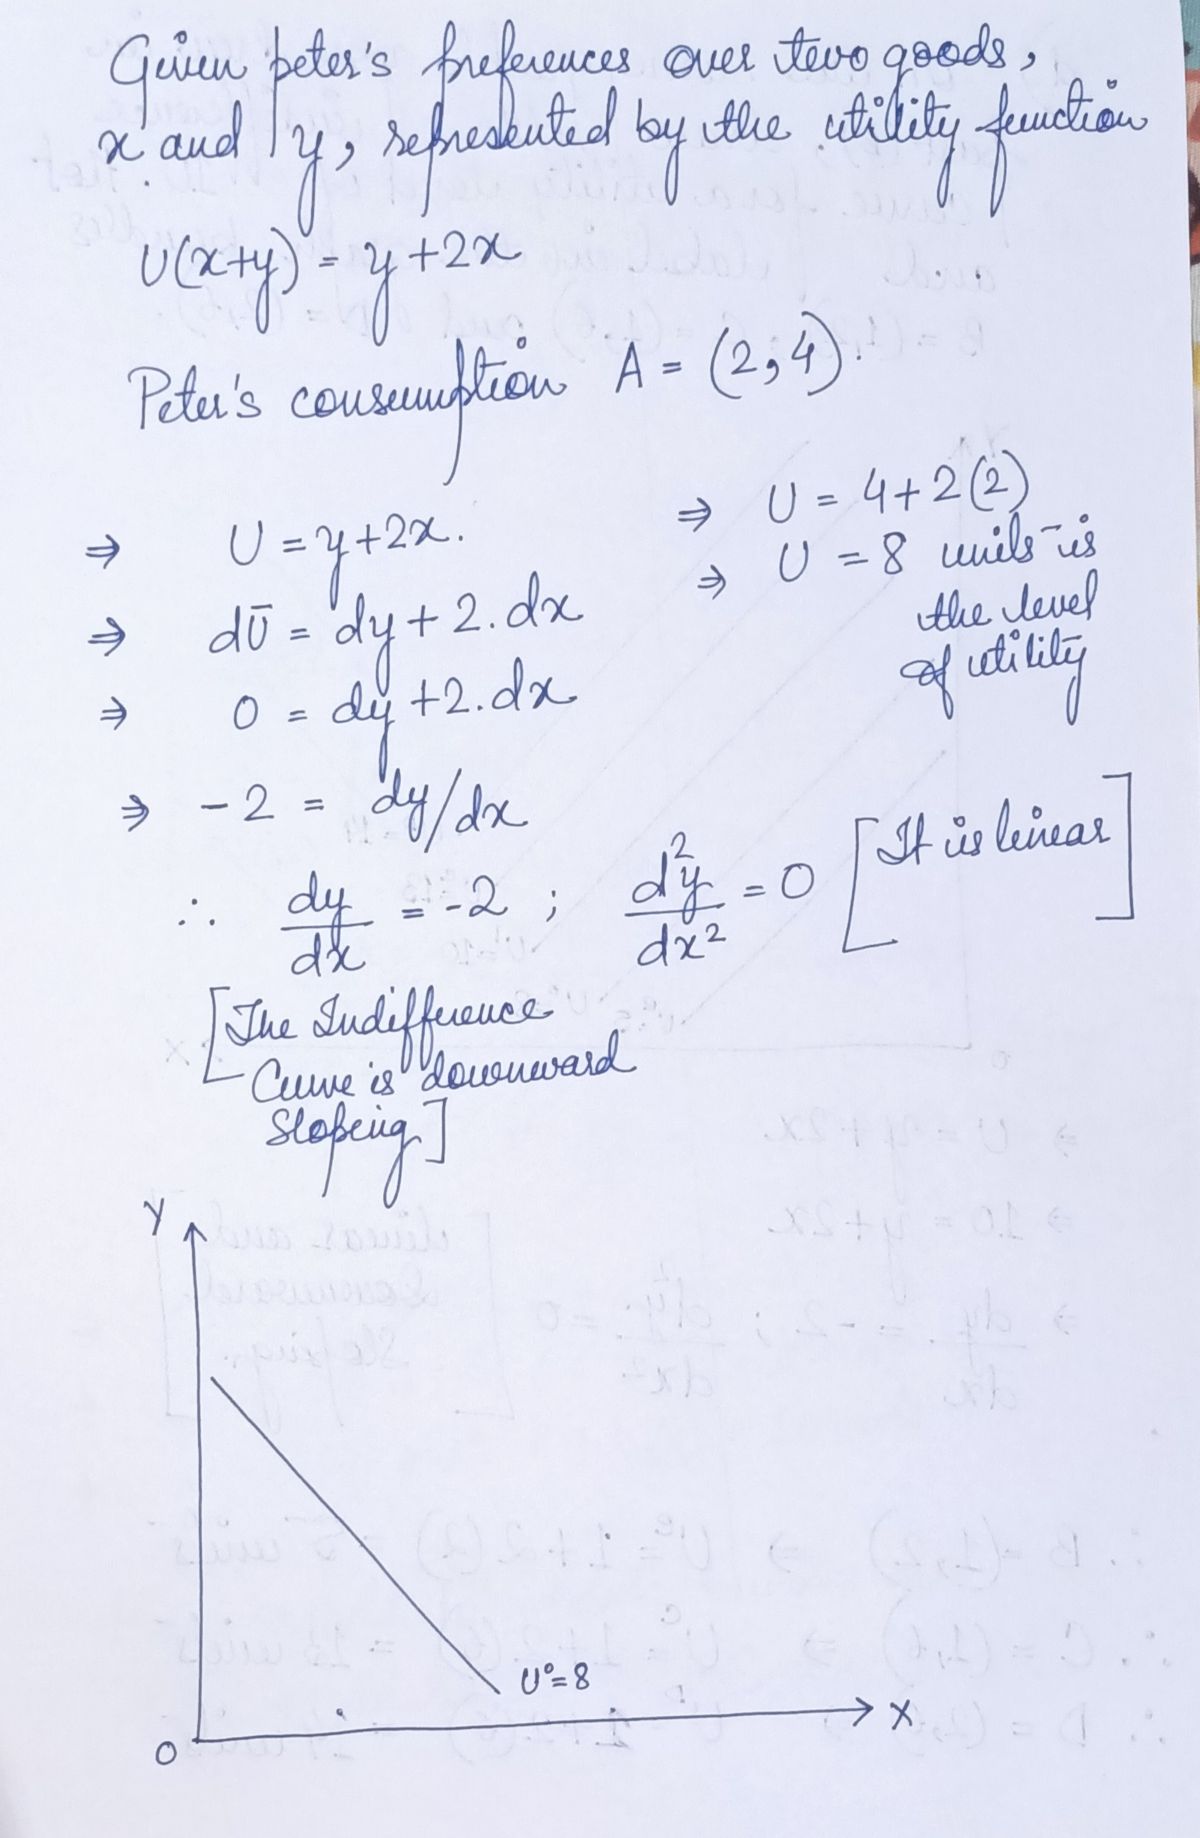 Given peter's preferences over two goods,
x and y, represented by the utility function
U(x+y) = y+2x
Peter's consumption A = (2,4).
⇒ U = y+2x. ⇒ U = 4+2(2)
⇒ U = 8 units is
the level
of utility
⇒ dŪ = dy + 2.dx
⇒ 0 = dy +2.dx
⇒ -2 = dy/dx
∴ dy/dx = -2 ; d²y/dx² = 0 [It is linear]
[The Indifference
Curve is downward
Sloping]
Y
U⁰=8
X
O